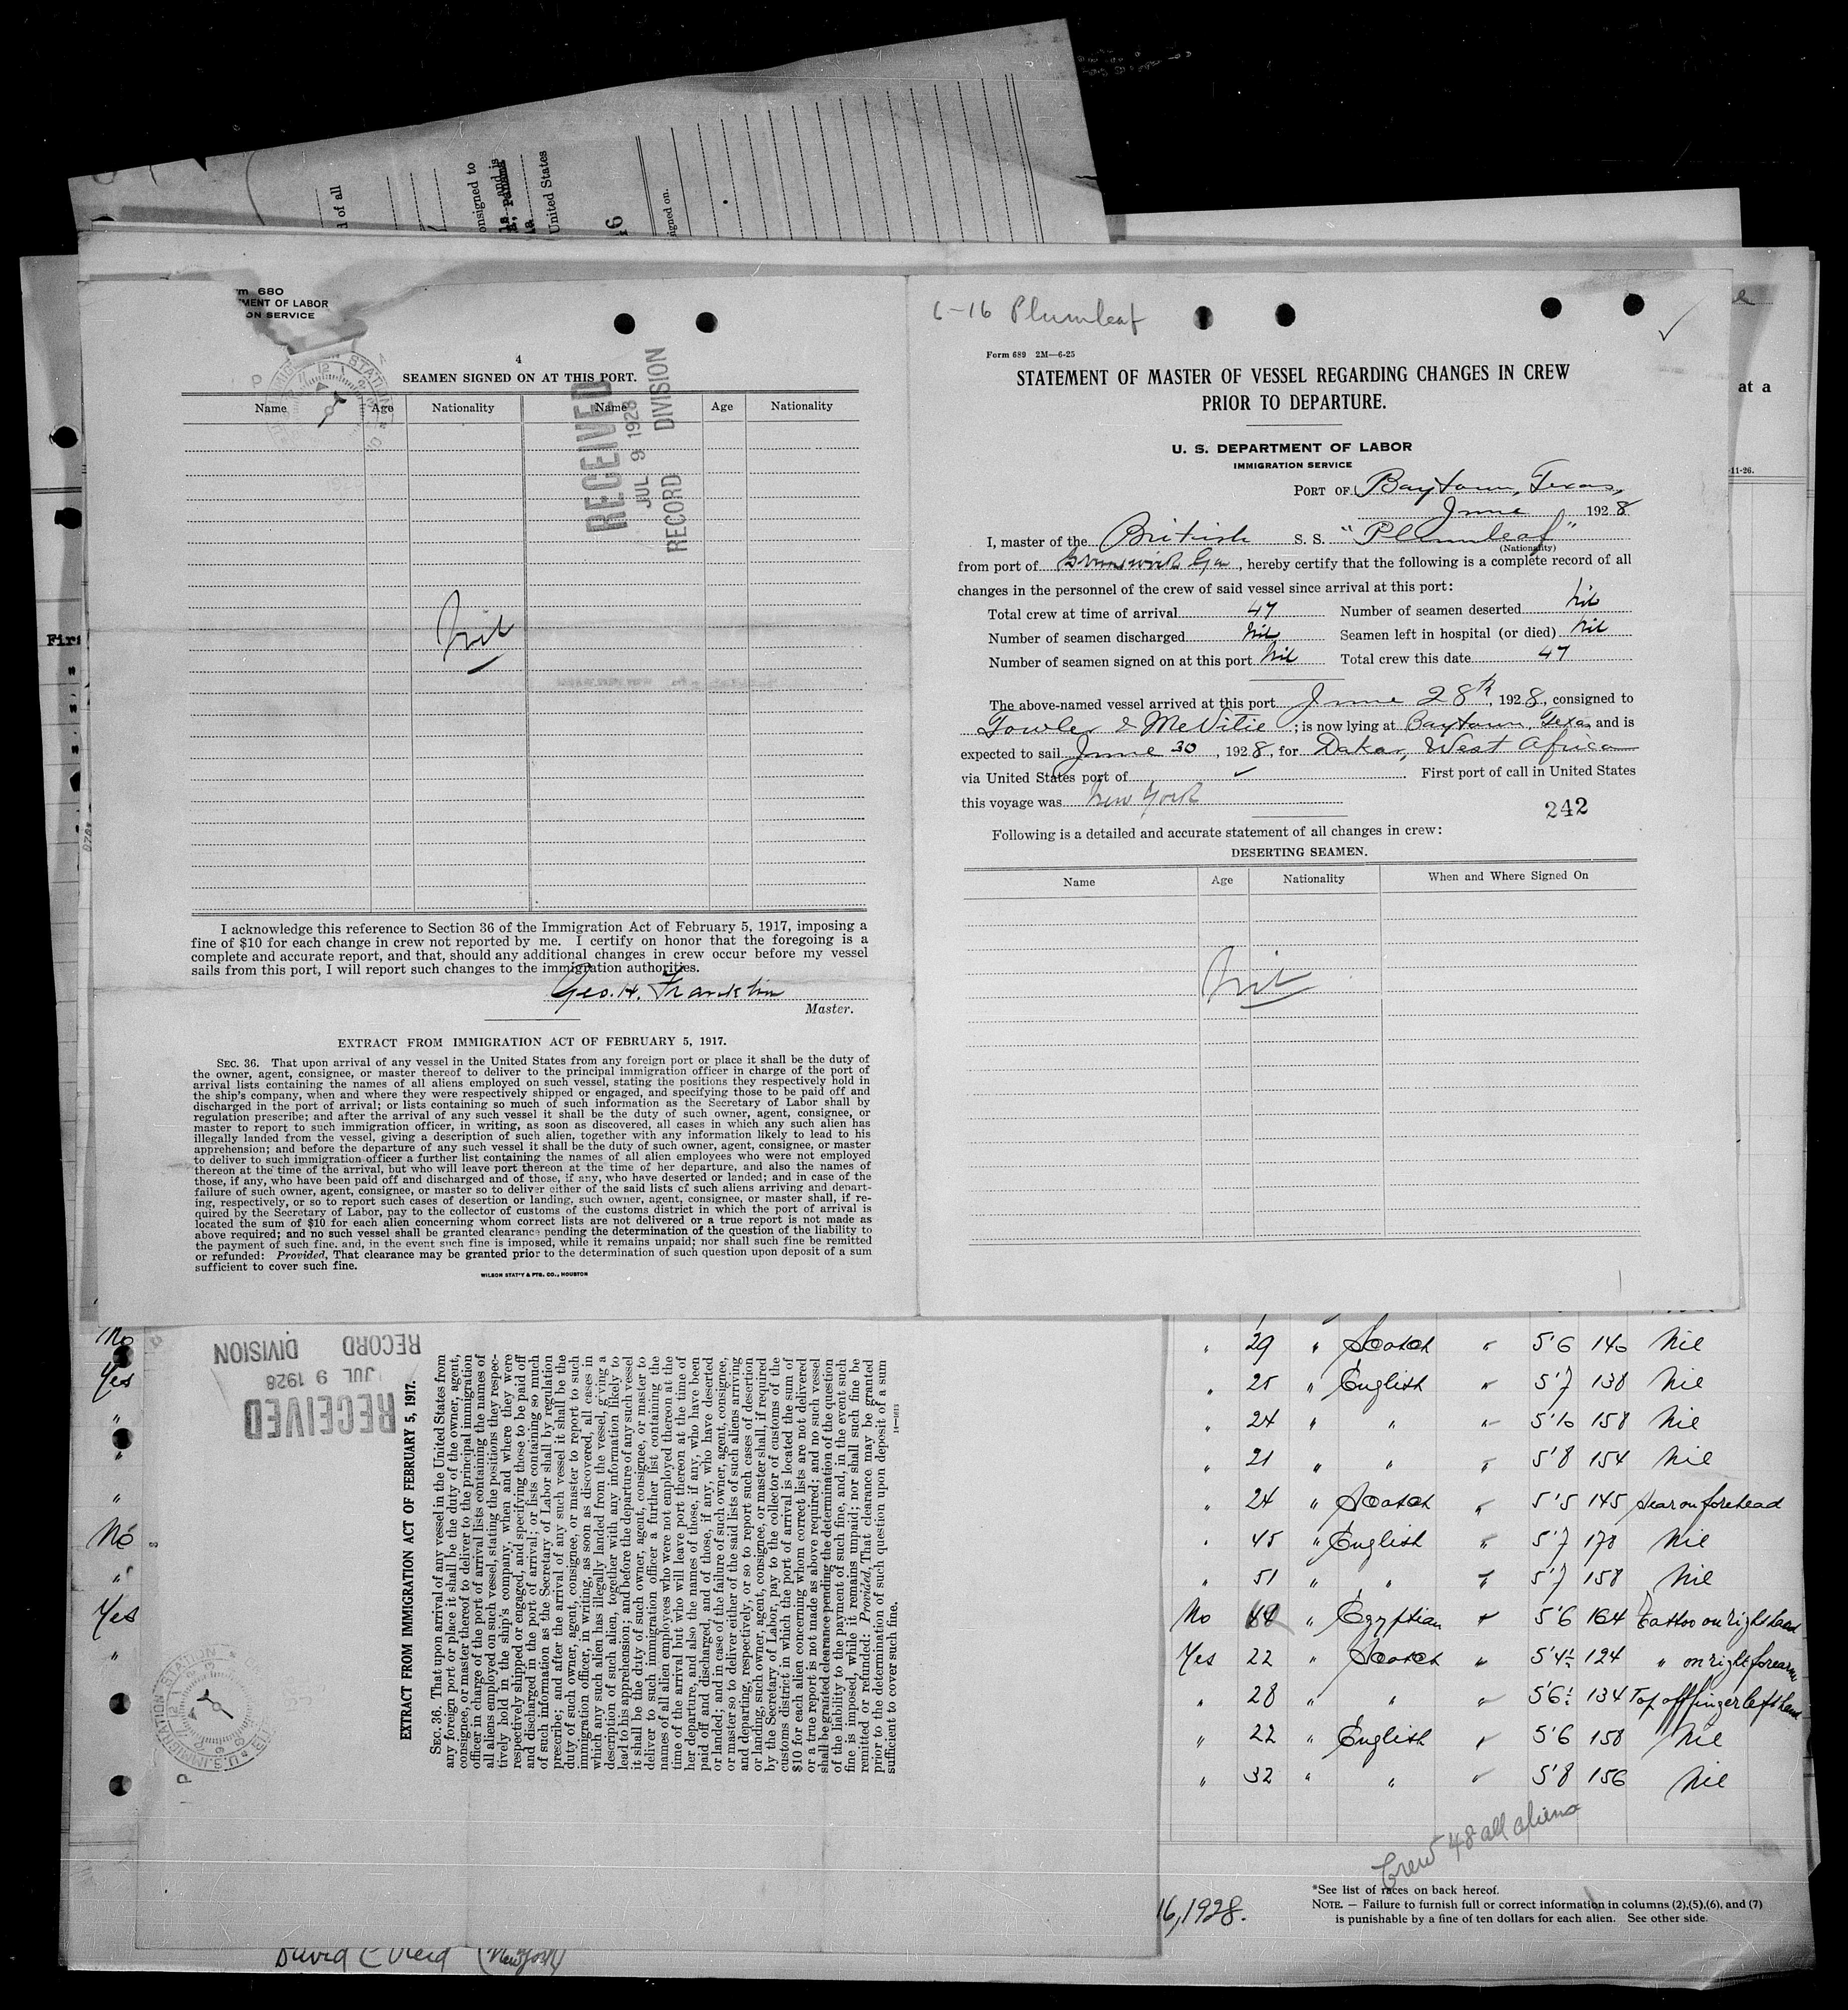 d of all
onsigned to
and is
United States
signed on.
m 680
MENT OF LABOR
ON SERVICE
4
SEAMEN SIGNED ON AT THIS PORT.
Name Age Nationality Name Age Nationality
RECEIVED
JUL 9 1928
RECORD DIVISION
Nil
I acknowledge this reference to Section 36 of the Immigration Act of February 5, 1917, imposing a
fine of $10 for each change in crew not reported by me. I certify on honor that the foregoing is a
complete and accurate report, and that, should any additional changes in crew occur before my vessel
sails from this port, I will report such changes to the immigration authorities.
Geo. H. Franklin
Master.
EXTRACT FROM IMMIGRATION ACT OF FEBRUARY 5, 1917.
SEC. 36. That upon arrival of any vessel in the United States from any foreign port or place it shall be the duty of
the owner, agent, consignee, or master thereof to deliver to the principal immigration officer in charge of the port of
arrival lists containing the names of all aliens employed on such vessel, stating the positions they respectively hold in
the ship's company, when and where they were respectively shipped or engaged, and specifying those to be paid off and
discharged in the port of arrival; or lists containing so much of such information as the Secretary of Labor shall by
regulation prescribe; and after the arrival of any such vessel it shall be the duty of such owner, agent, consignee, or
master to report to such immigration officer, in writing, as soon as discovered, all cases in which any such alien has
illegally landed from the vessel, giving a description of such alien, together with any information likely to lead to his
apprehension; and before the departure of any such vessel it shall be the duty of such owner, agent, consignee, or master
to deliver to such immigration officer a further list containing the names of all alien employees who were not employed
thereon at the time of the arrival, but who will leave port thereon at the time of her departure, and also the names of
those, if any, who have been paid off and discharged and of those, if any, who have deserted or landed; and in case of the
failure of such owner, agent, consignee, or master so to deliver either of the said lists of such aliens arriving and depart-
ing, respectively, or so to report such cases of desertion or landing, such owner, agent, consignee, or master shall, if re-
quired by the Secretary of Labor, pay to the collector of customs of the customs district in which the port of arrival is
located the sum of $10 for each alien concerning whom correct lists are not delivered or a true report is not made as
above required; and no such vessel shall be granted clearance pending the determination of the question of the liability to
the payment of such fine, and, in the event such fine is imposed, while it remains unpaid; nor shall such fine be remitted
or refunded: Provided, That clearance may be granted prior to the determination of such question upon deposit of a sum
sufficient to cover such fine.
WILSON STAT'Y & PTG. CO., HOUSTON
6-16 Plumleaf
Form 689 2M—6-25
STATEMENT OF MASTER OF VESSEL REGARDING CHANGES IN CREW
PRIOR TO DEPARTURE.
U. S. DEPARTMENT OF LABOR
IMMIGRATION SERVICE
PORT OF Baytown, Texas,
June 1928
I, master of the British S. S. "Plumleaf"
(Nationality)
from port of Brunswick Ga, hereby certify that the following is a complete record of all
changes in the personnel of the crew of said vessel since arrival at this port:
Total crew at time of arrival 47 Number of seamen deserted Nil
Number of seamen discharged Nil Seamen left in hospital (or died) Nil
Number of seamen signed on at this port Nil Total crew this date 47
The above-named vessel arrived at this port June 28th, 1928, consigned to
Fowler & McVitie; is now lying at Baytown Texas and is
expected to sail June 30, 1928, for Dakar, West Africa
via United States port of ✓ First port of call in United States
this voyage was New York
242
Following is a detailed and accurate statement of all changes in crew:
DESERTING SEAMEN.
Name Age Nationality When and Where Signed On
Nil
at a
-11-26.
Firs
No
Yes
"
"
"
No
"
Yes
"
RECORD DIVISION
JUL 9 1928
RECEIVED
EXTRACT FROM IMMIGRATION ACT OF FEBRUARY 5, 1917.
SEC. 36. That upon arrival of any vessel in the United States from
any foreign port or place it shall be the duty of the owner, agent,
consignee, or master thereof to deliver to the principal immigration
officer in charge of the port of arrival lists containing the names of
all aliens employed on such vessel, stating the positions they respec-
tively hold in the ship's company, when and where they were
respectively shipped or engaged, and specifying those to be paid off
and discharged in the port of arrival; or lists containing so much
of such information as the Secretary of Labor shall by regulation
prescribe; and after the arrival of any such vessel it shall be the
duty of such owner, agent, consignee, or master to report to such
immigration officer, in writing, as soon as discovered, all cases in
which any such alien has illegally landed from the vessel, giving a
description of such alien, together with any information likely to
lead to his apprehension; and before the departure of any such vessel
it shall be the duty of such owner, agent, consignee, or master to
deliver to such immigration officer a further list containing the
names of all alien employees who were not employed thereon at the
time of the arrival but who will leave port thereon at the time of
her departure, and also the names of those, if any, who have been
paid off and discharged, and of those, if any, who have deserted
or landed; and in case of the failure of such owner, agent, consignee,
or master so to deliver either of the said lists of such aliens arriving
and departing, respectively, or so to report such cases of desertion
or landing, such owner, agent, consignee, or master shall, if required
by the Secretary of Labor, pay to the collector of customs of the
customs district in which the port of arrival is located the sum of
$10 for each alien concerning whom correct lists are not delivered
or a true report is not made as above required; and no such vessel
shall be granted clearance pending the determination of the question
of the liability to the payment of such fine, and, in the event such
fine is imposed, while it remains unpaid; nor shall such fine be
remitted or refunded: Provided, That clearance may be granted
prior to the determination of such question upon deposit of a sum
sufficient to cover such fine.
" 29 " Scotch " 5'6 140 Nil
" 25 " English " 5'7 138 Nil
" 24 " " " 5'10 158 Nil
" 21 " " " 5'8 154 Nil
" 24 " Scotch " 5'5 145 Scar on forehead
" 45 " English " 5'7 170 Nil
" 51 " " " 5'7 158 Nil
No 44 " Egyptian " 5'6 164 Tattoo on right hand
Yes 22 " Scotch " 5'4½ 124 " on right forearm
" 28 " " " 5'6½ 134 Top off finger left hand
" 22 " English " 5'6 150 Nil
" 32 " " " 5'8 156 Nil
Crew 48 all aliens
*See list of races on back hereof.
NOTE. — Failure to furnish full or correct information in columns (2),(5),(6), and (7)
is punishable by a fine of ten dollars for each alien. See other side.
16, 1928.
David C Reid (New York)